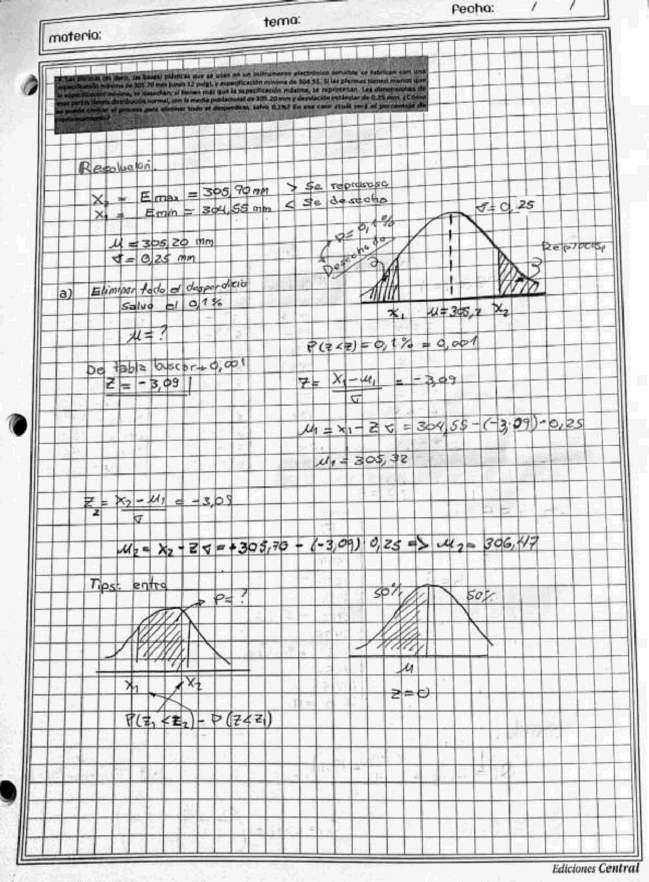 materia:
tema:
fecha: / /
plásticas que se usan en un instrumento electrónico sensible se fabrican con una
especificación máxima de 305.70 mm (unas 12 pulg), y especificación mínima de 304.55. Si las pletinas tienen menos que
la especificación mínima, se desechan; si tienen más que la especificación máxima, se reprocesan. Las dimensiones de
esas partes tienen distribución normal, con la media poblacional de 305.20 mm y desviación estándar de 0.25 mm. ¿Cómo
se puede centrar el proceso para eliminar todo el desperdicio, salvo 0.1%? En ese caso ¿cuál será el porcentaje de
Resolución.
X₂ = Emax = 305,70 mm > Se reprocesa
X₁ = Emin = 304,55 mm < Se desecha
μ = 305,20 mm
σ = 0,25 mm
σ = 0,25
P = 0,1%
Desechado
Reproceso
X₁ μ = 305,2 X₂
a) Eliminar todo el desperdicio
Salvo el 0,1%
μ = ?
P(z<z) = 0,1% = 0,001
De tabla buscar → 0,001
Z = -3,09
Z = X₁ - μ₁ / σ = -3,09
μ₁ = X₁ - Z σ = 304,55 - (-3,09)·0,25
μ₁ = 305,32
Z₂ = X₂ - μ₁ / σ = -3,09
μ₂ = X₂ - Z σ = +305,70 - (-3,09)·0,25 => μ₂ = 306,47
Tips: entre
P = ?
50% 50%
X₁ X₂
μ
Z = 0
P(Z₁ < Z₂) - P(Z<Z₁)
Ediciones Central